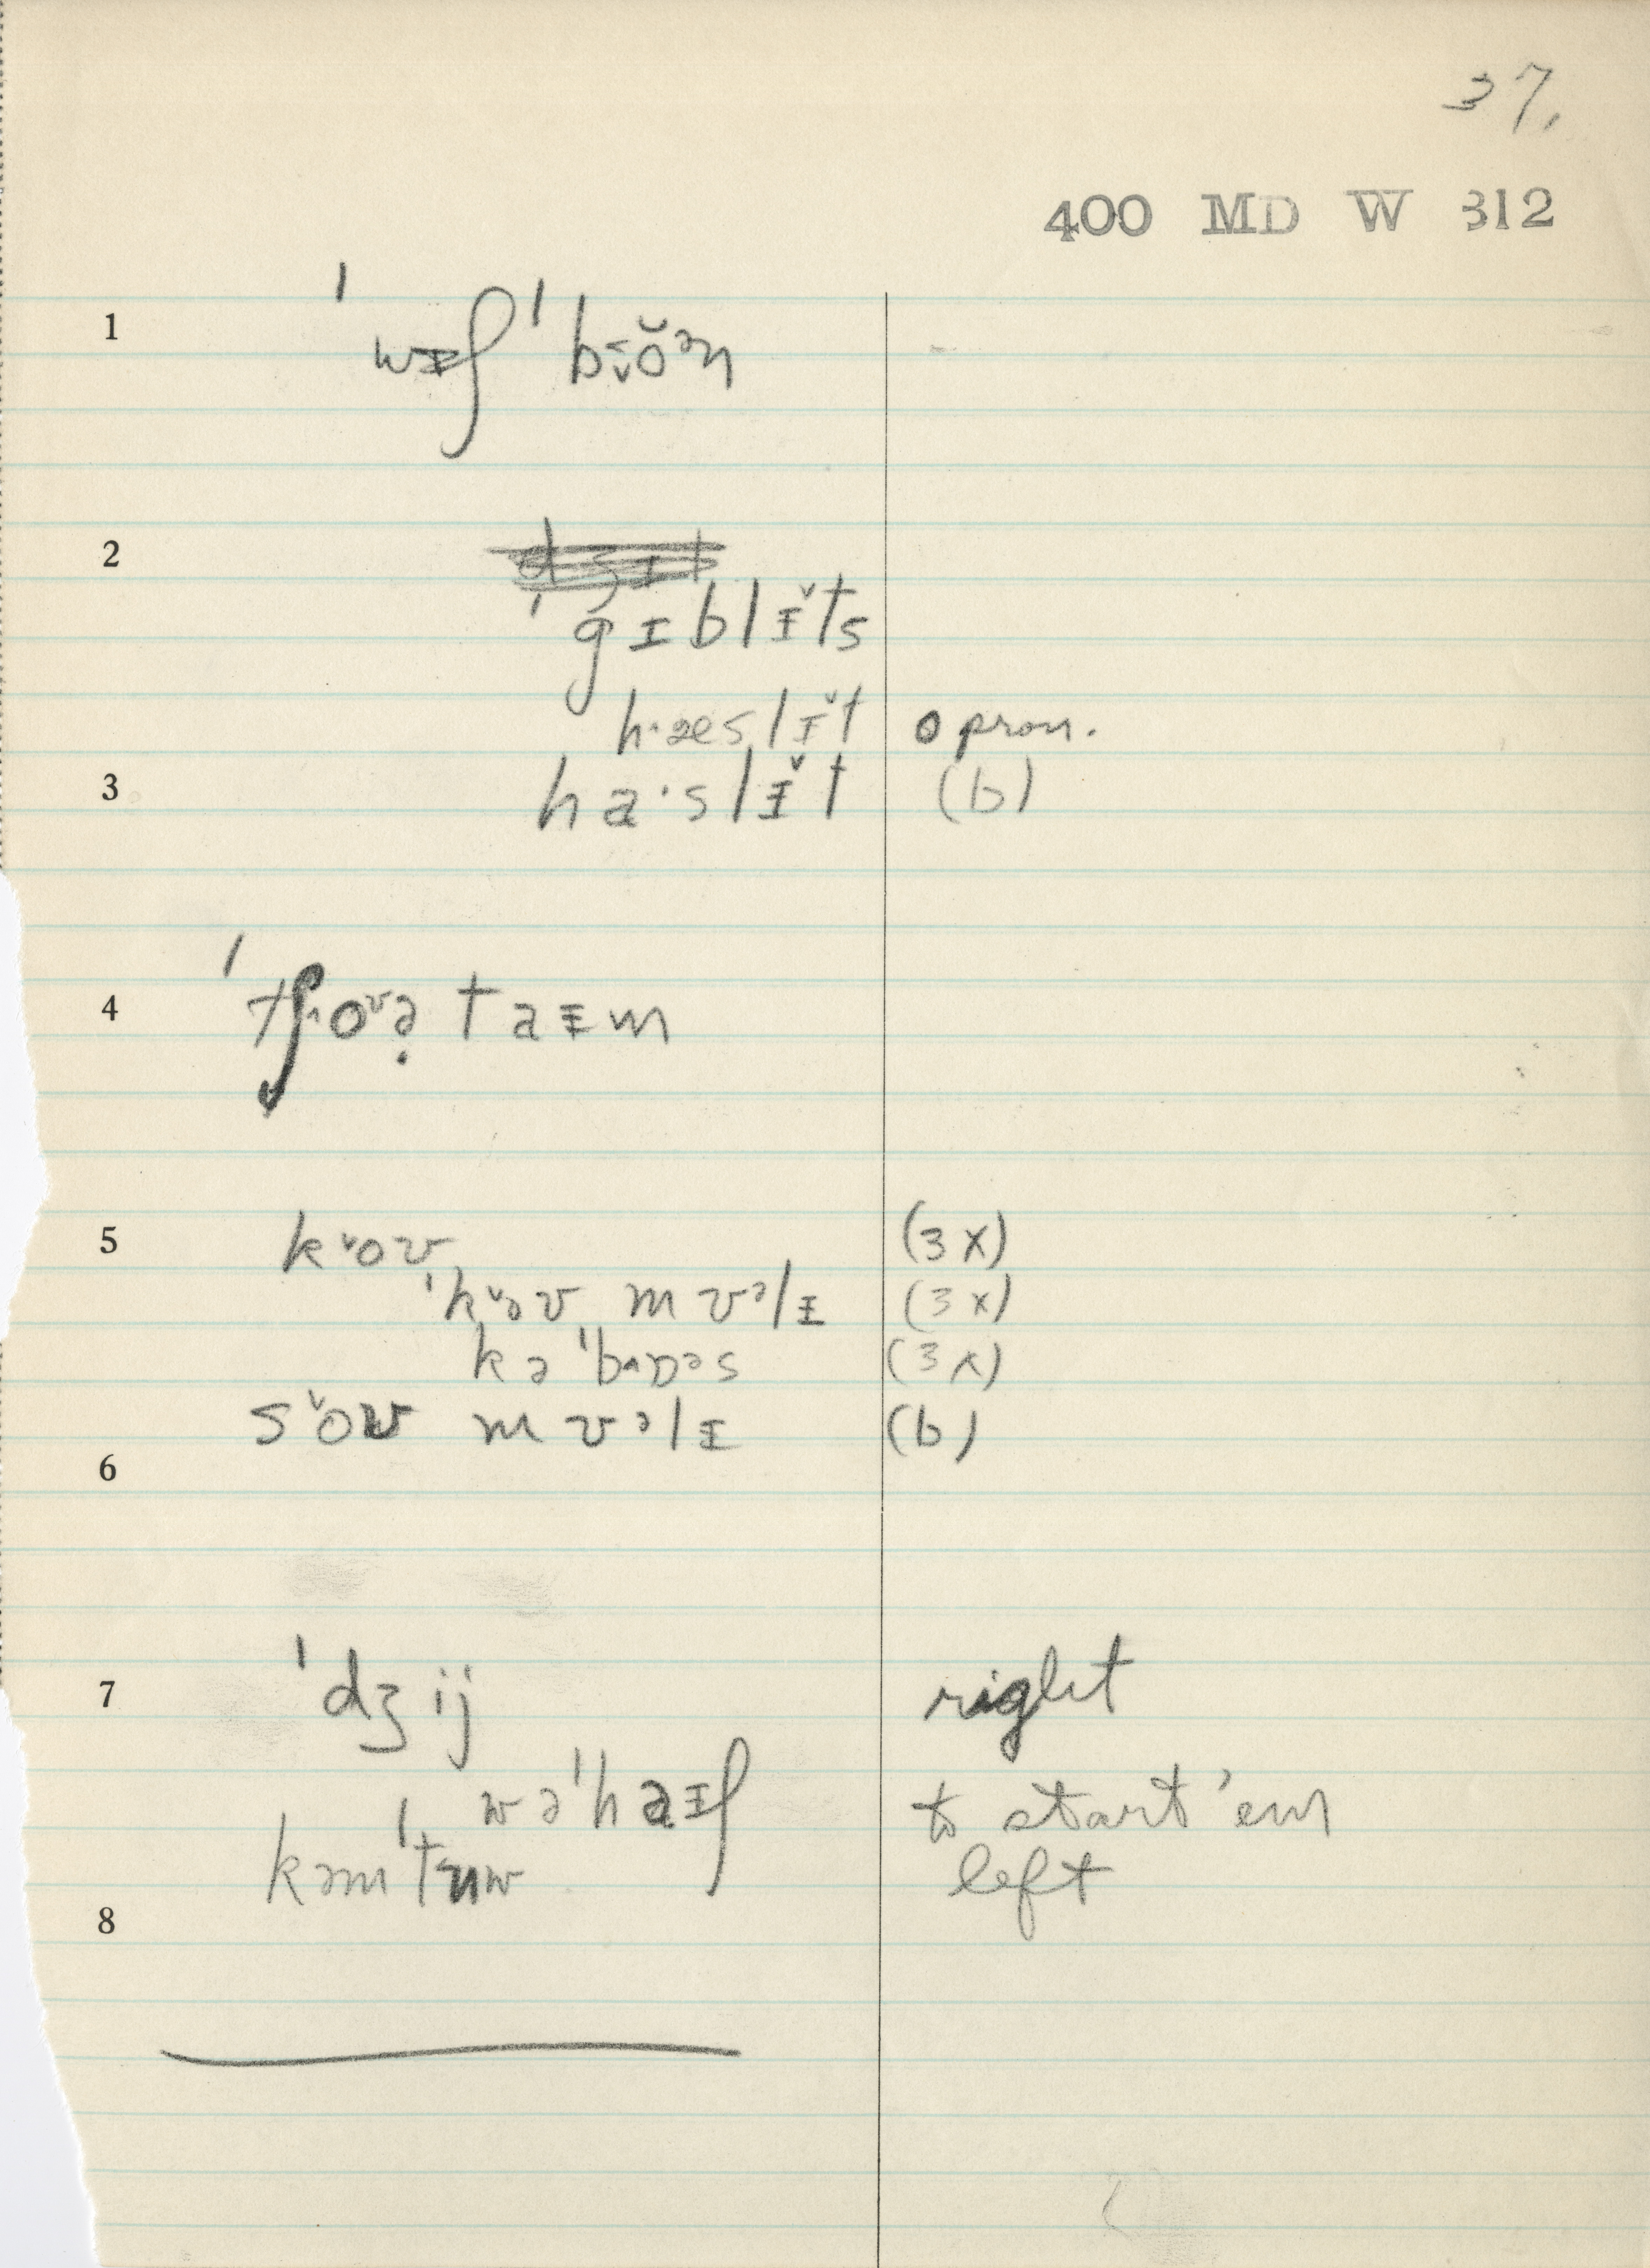 37.
400 MD W 312
1 ˈwɪʃ ˈbɪ̬ŏᵊn
2
ˈgɪblɪ̆ts
h·æslɪ̆t o pron.
3 ha·slɪ̆t (b)
4 ˈtʃoᶹə̣ taɪm
5 k˅oʊ (3 x)
ˈk˅əʊ mʊᵊlɪ (3 x)
kəˈbɒᵊs (3 x)
s˅oʊ mʊᵊlɪ (b)
6
7 ˈdʒij right
wəˈhaɪʃ to start 'em
kəmˈtɜuw left
8